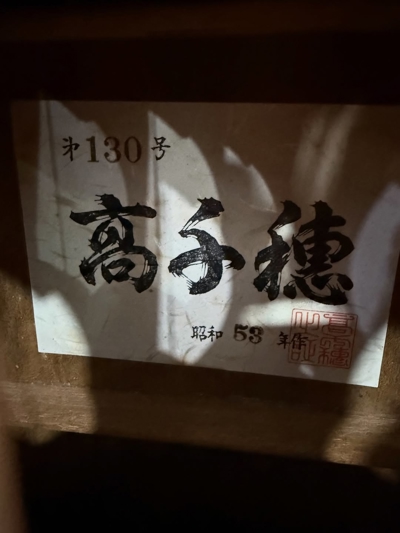 㐧130号
高千穗
昭和53年作